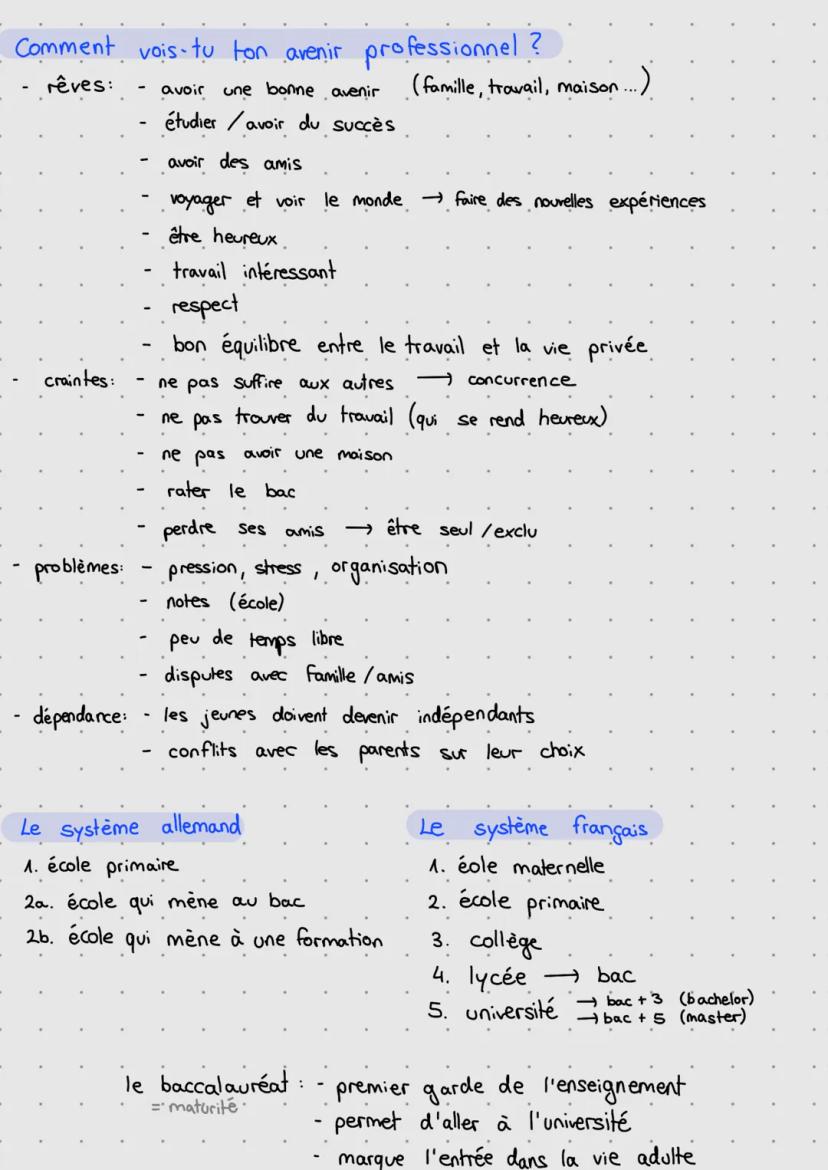 Comment vois-tu ton avenir professionnel ?
- rêves: - avoir une bonne avenir (famille, travail, maison ...)
- étudier / avoir du succès
- avoir des amis
- voyager et voir le monde → faire des nouvelles expériences
- être heureux
- travail intéressant
- respect
- bon équilibre entre le travail et la vie privée
- craintes: - ne pas suffire aux autres → concurrence
- ne pas trouver du travail (qui se rend heureux)
- ne pas avoir une maison
- rater le bac
- perdre ses amis → être seul / exclu
- problèmes: - pression, stress, organisation
- notes (école)
- peu de temps libre
- disputes avec famille / amis
- dépendance: - les jeunes doivent devenir indépendants
- conflits avec les parents sur leur choix
Le système allemand
1. école primaire
2a. école qui mène au bac
2b. école qui mène à une formation
Le système français
1. éole maternelle
2. école primaire
3. collège
4. lycée → bac
5. université → bac + 3 (bachelor)
→ bac + 5 (master)
le baccalauréat : - premier garde de l'enseignement
= maturité
- permet d'aller à l'université
- marque l'entrée dans la vie adulte